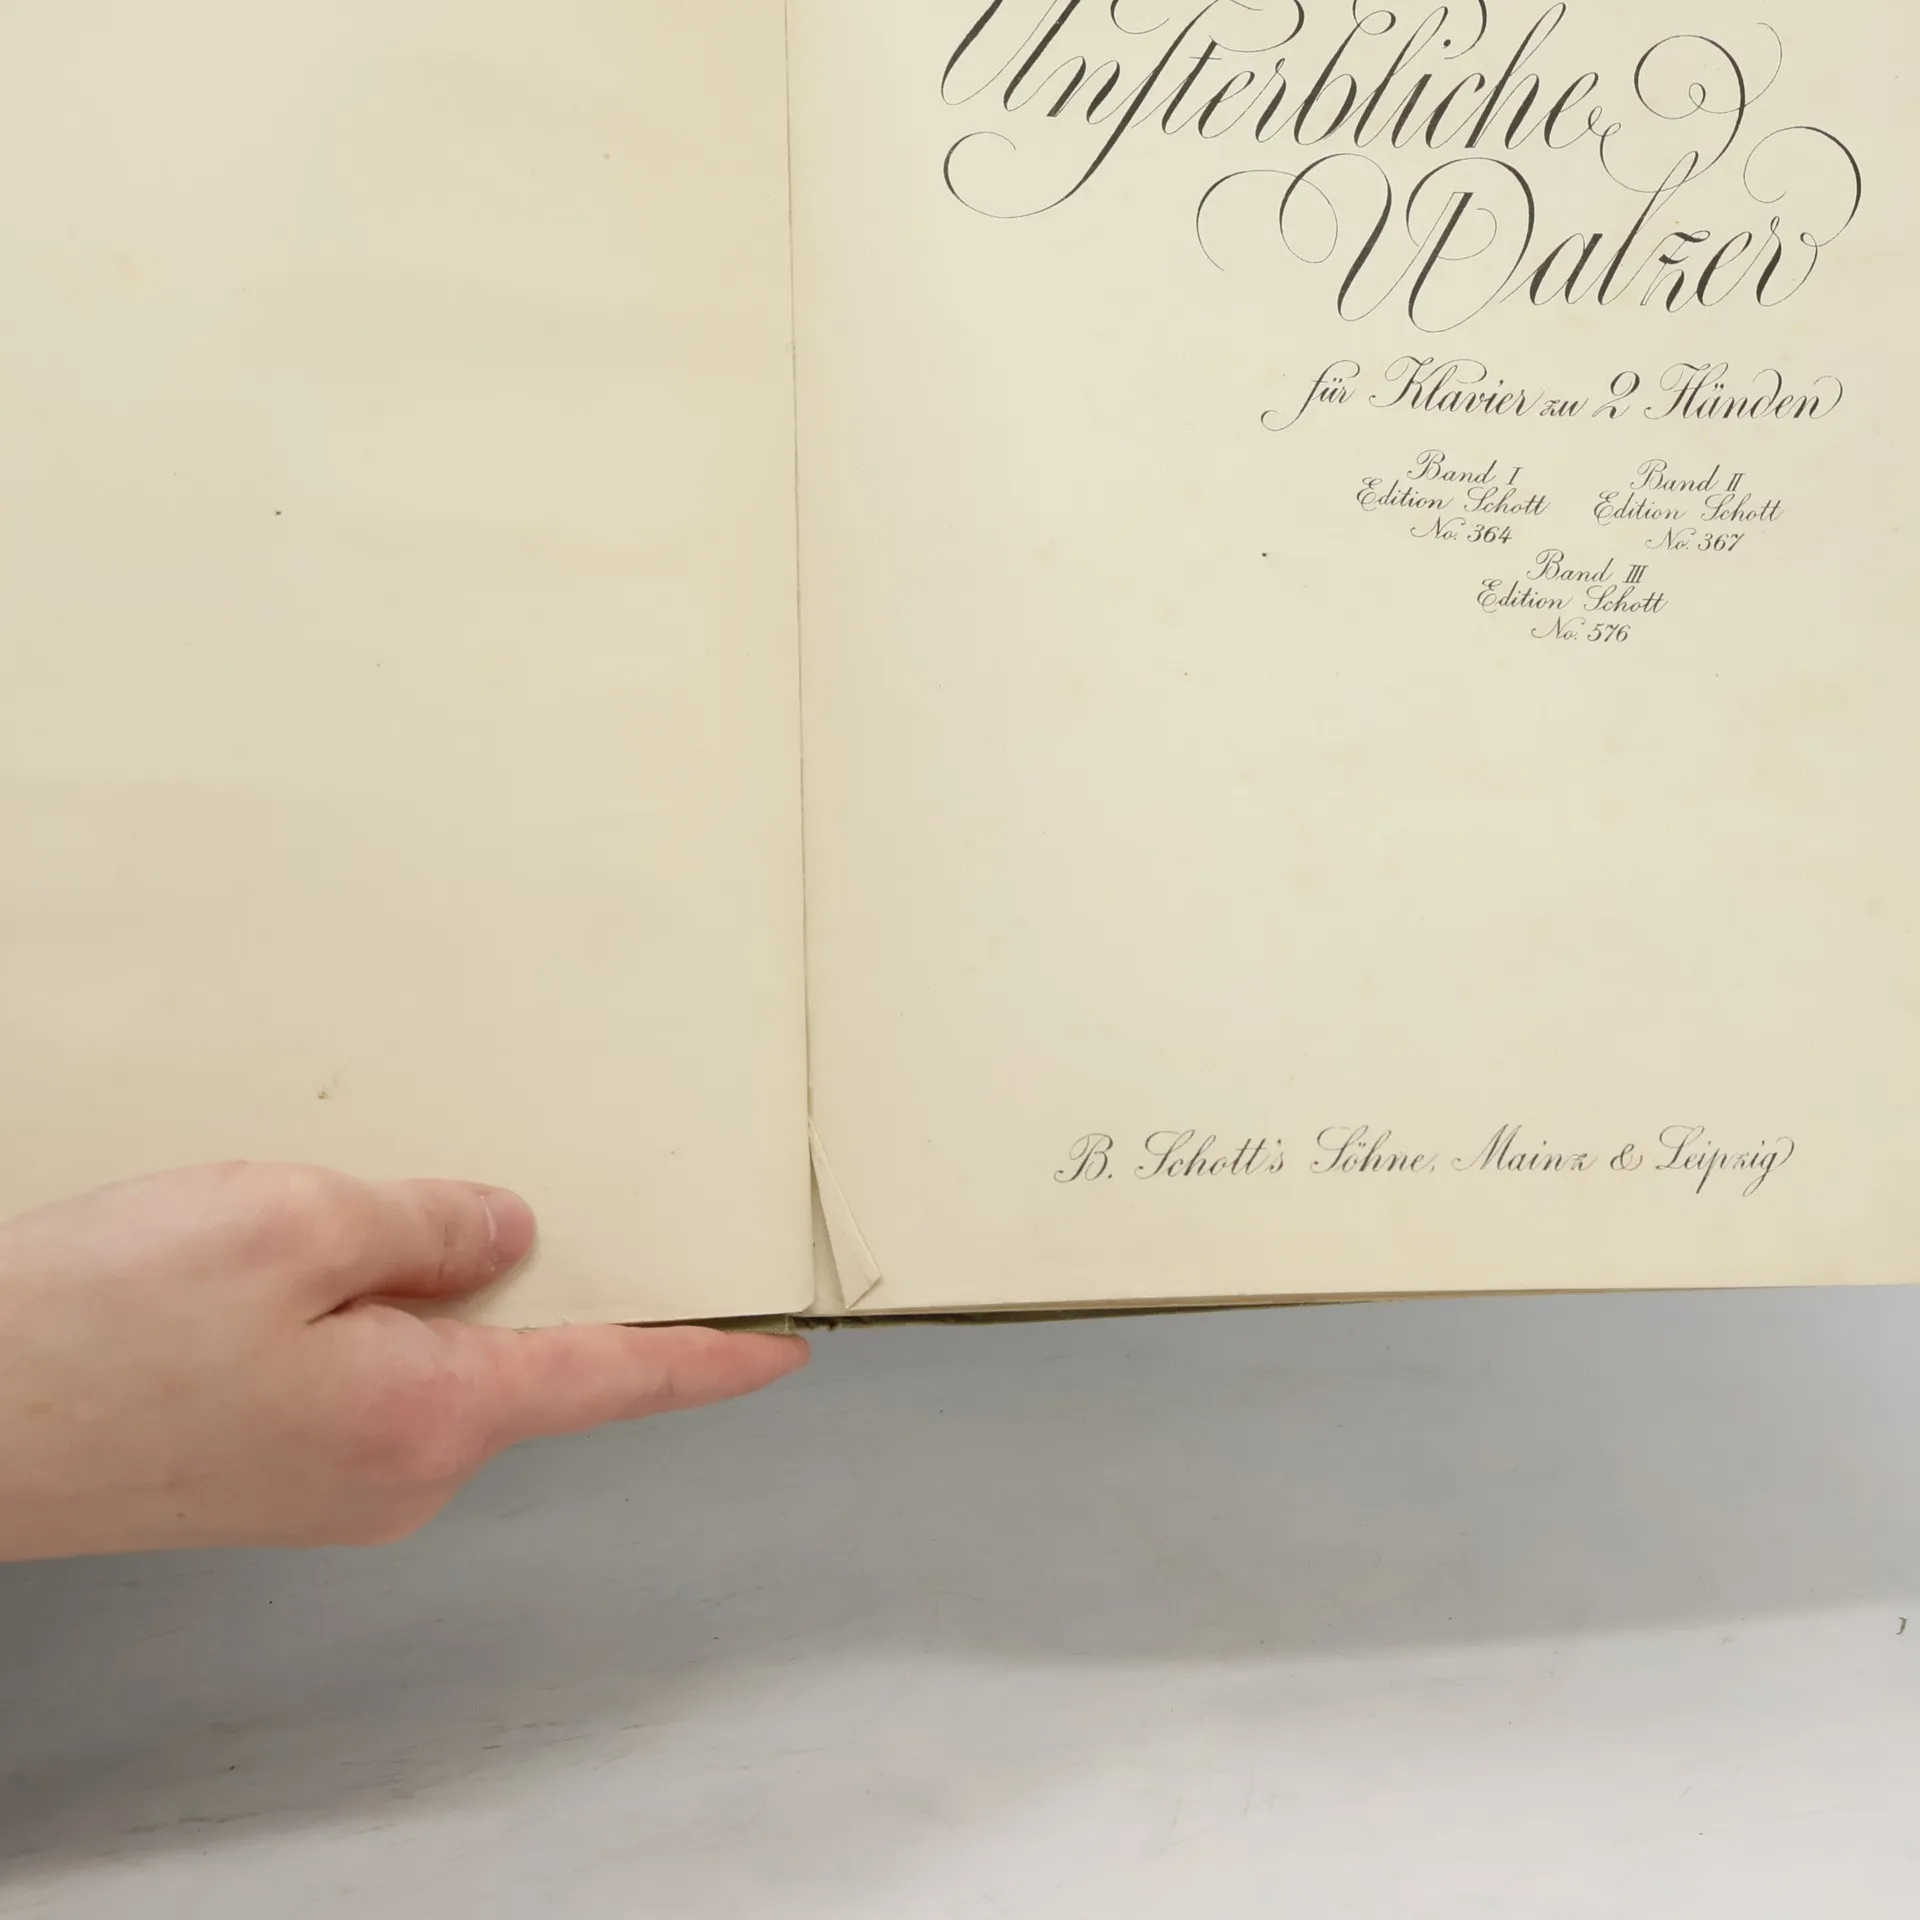 Unsterbliche
Walzer
für Klavier zu 2 Händen
Band I
Edition Schott
No. 364
Band II
Edition Schott
No. 367
Band III
Edition Schott
No. 576
B. Schott's Söhne, Mainz & Leipzig